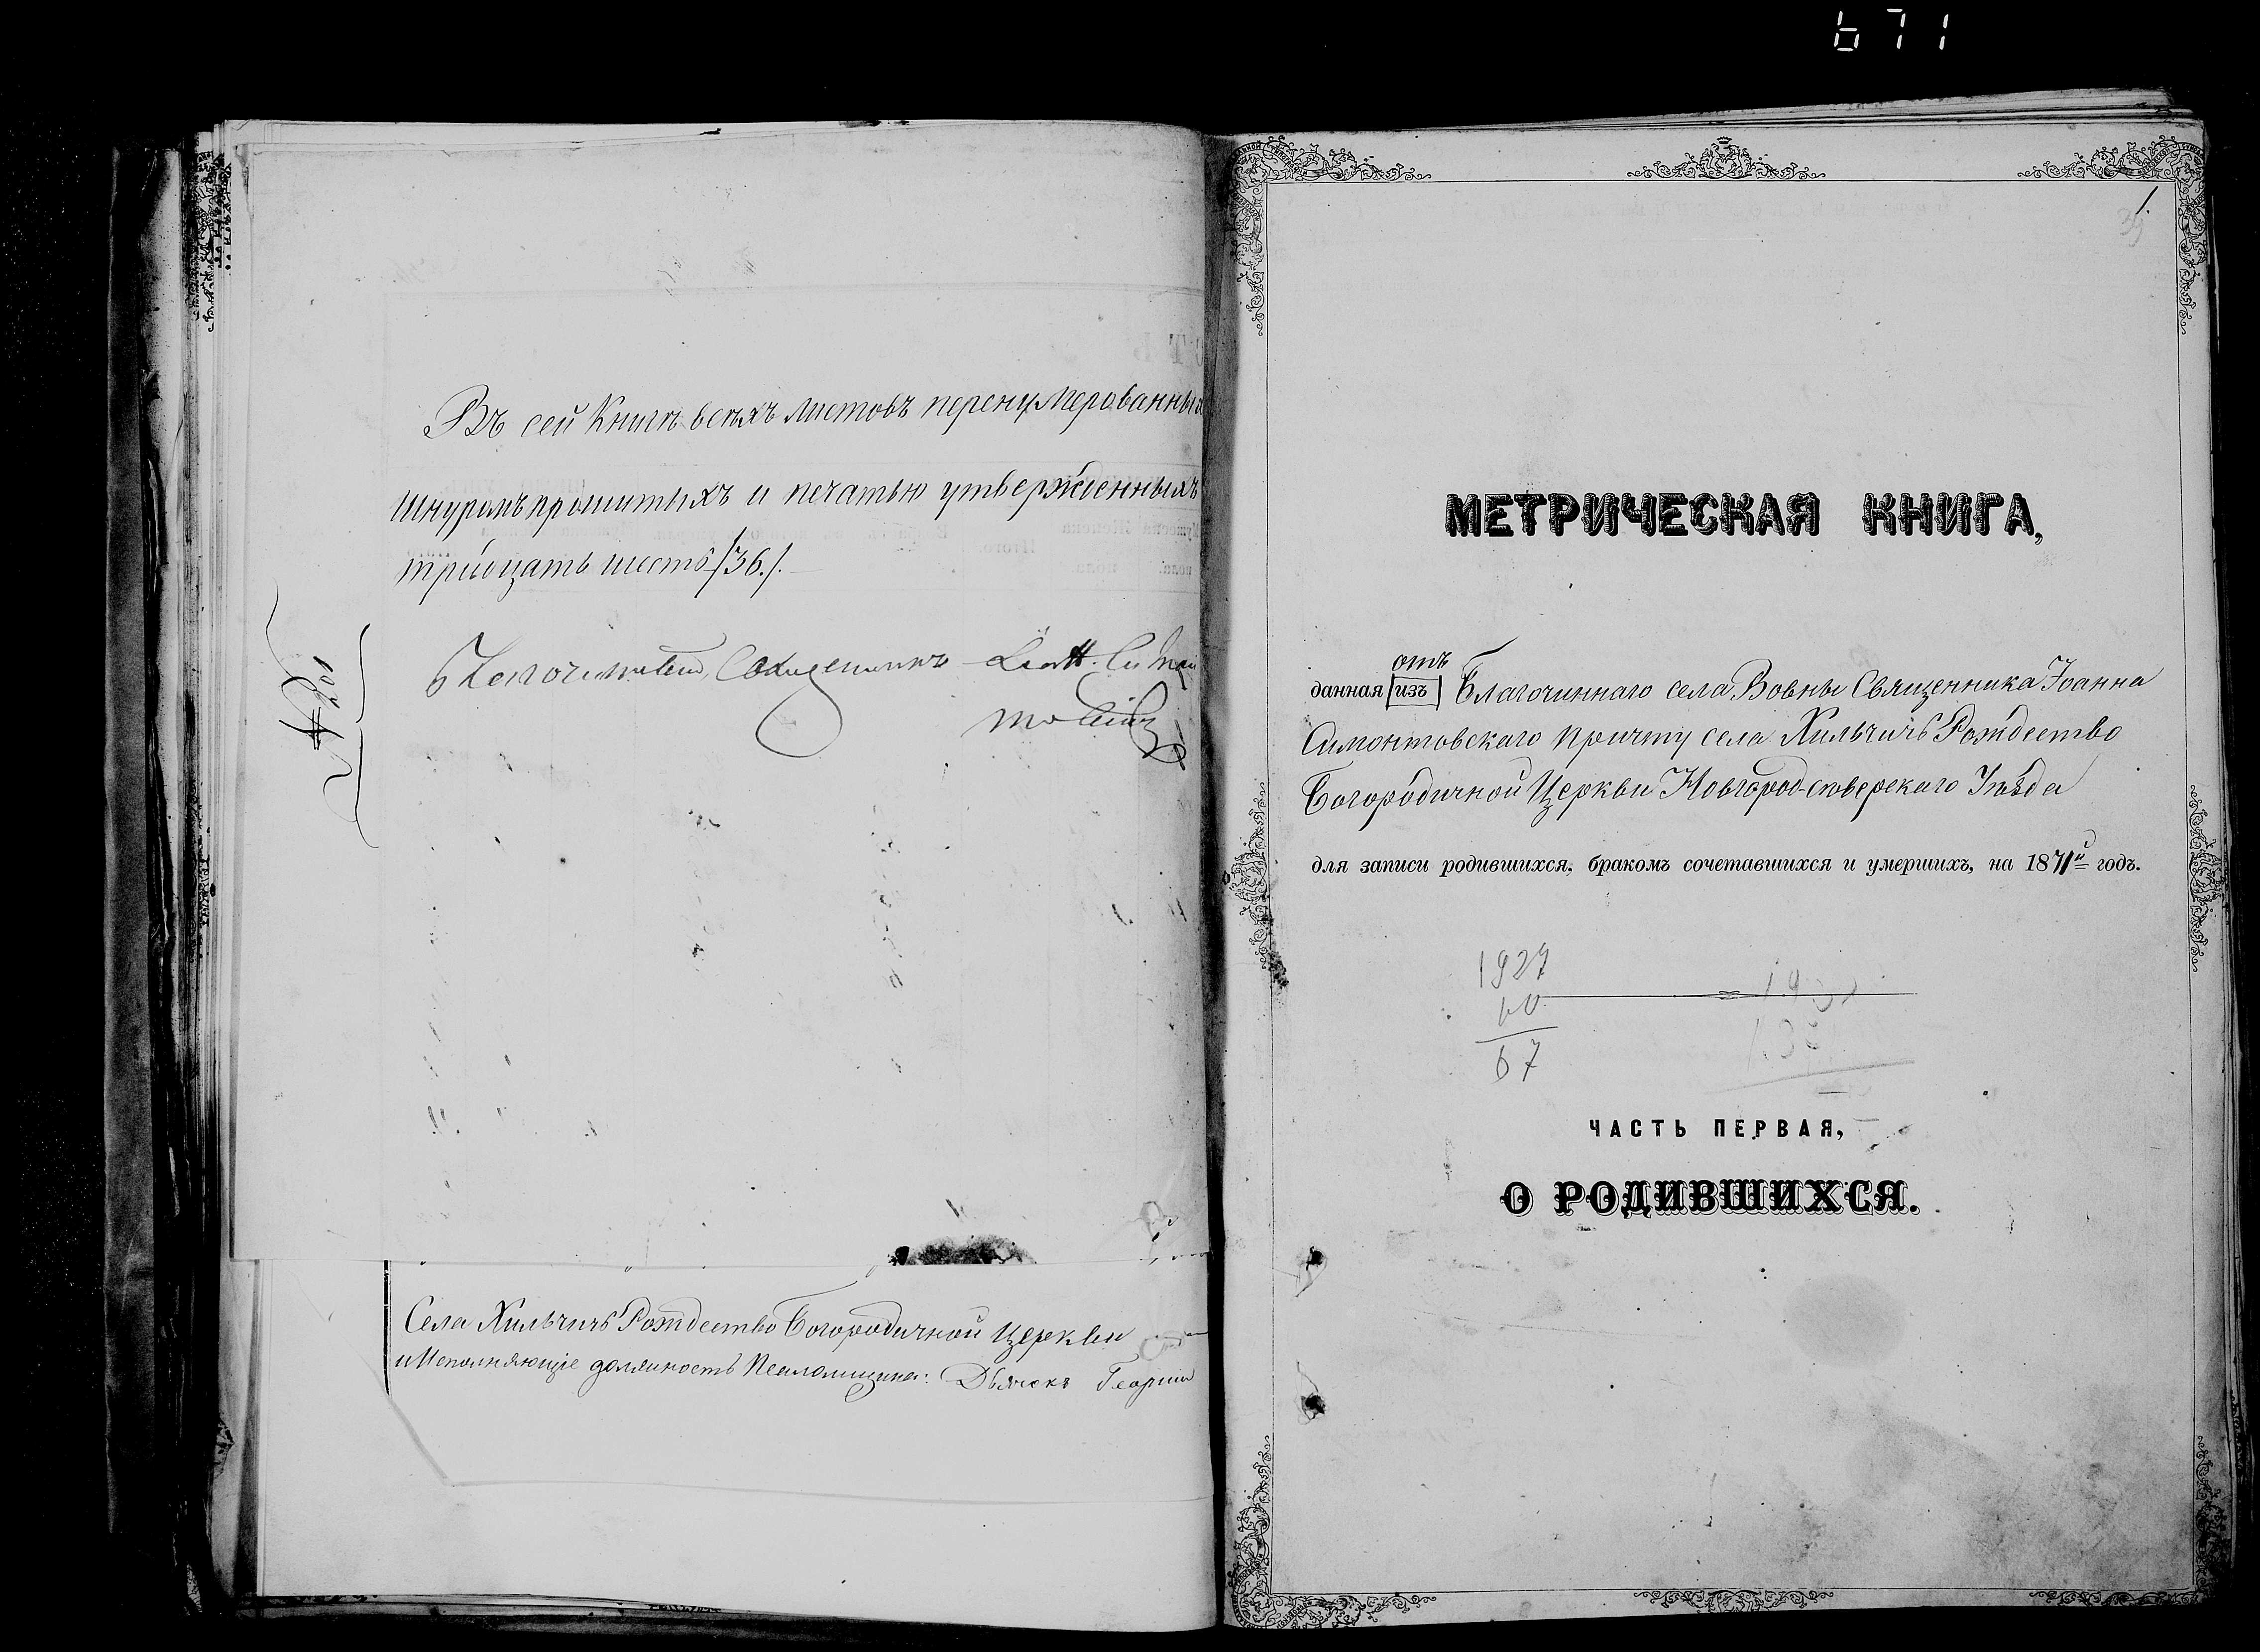 671
Въ сей Книгѣ всѣхъ листовъ перенумерованныхъ
Шнуромъ прошитыхъ и печатью утвержденныхъ
тридцать шесть /36./.
Благочинный, Священникъ
Села Хильчичъ Рождество Богородичной Церкви
и Исполняющіе должность Псаломщика: Дьячекъ Георгій
1.
35
МЕТРИЧЕСКАЯ КНИГА,
отъ
данная изъ Благочиннаго села Вовны Священника Іоанна
Симонтовскаго причту села Хильчичъ Рождество
Богородичной Церкви Новгород-сѣверскаго Уѣзда
для записи родившихся, бракомъ сочетавшихся и умершихъ, на 1871й годъ.
1927
60
67
ЧАСТЬ ПЕРВАЯ,
О РОДИВШИХСЯ.